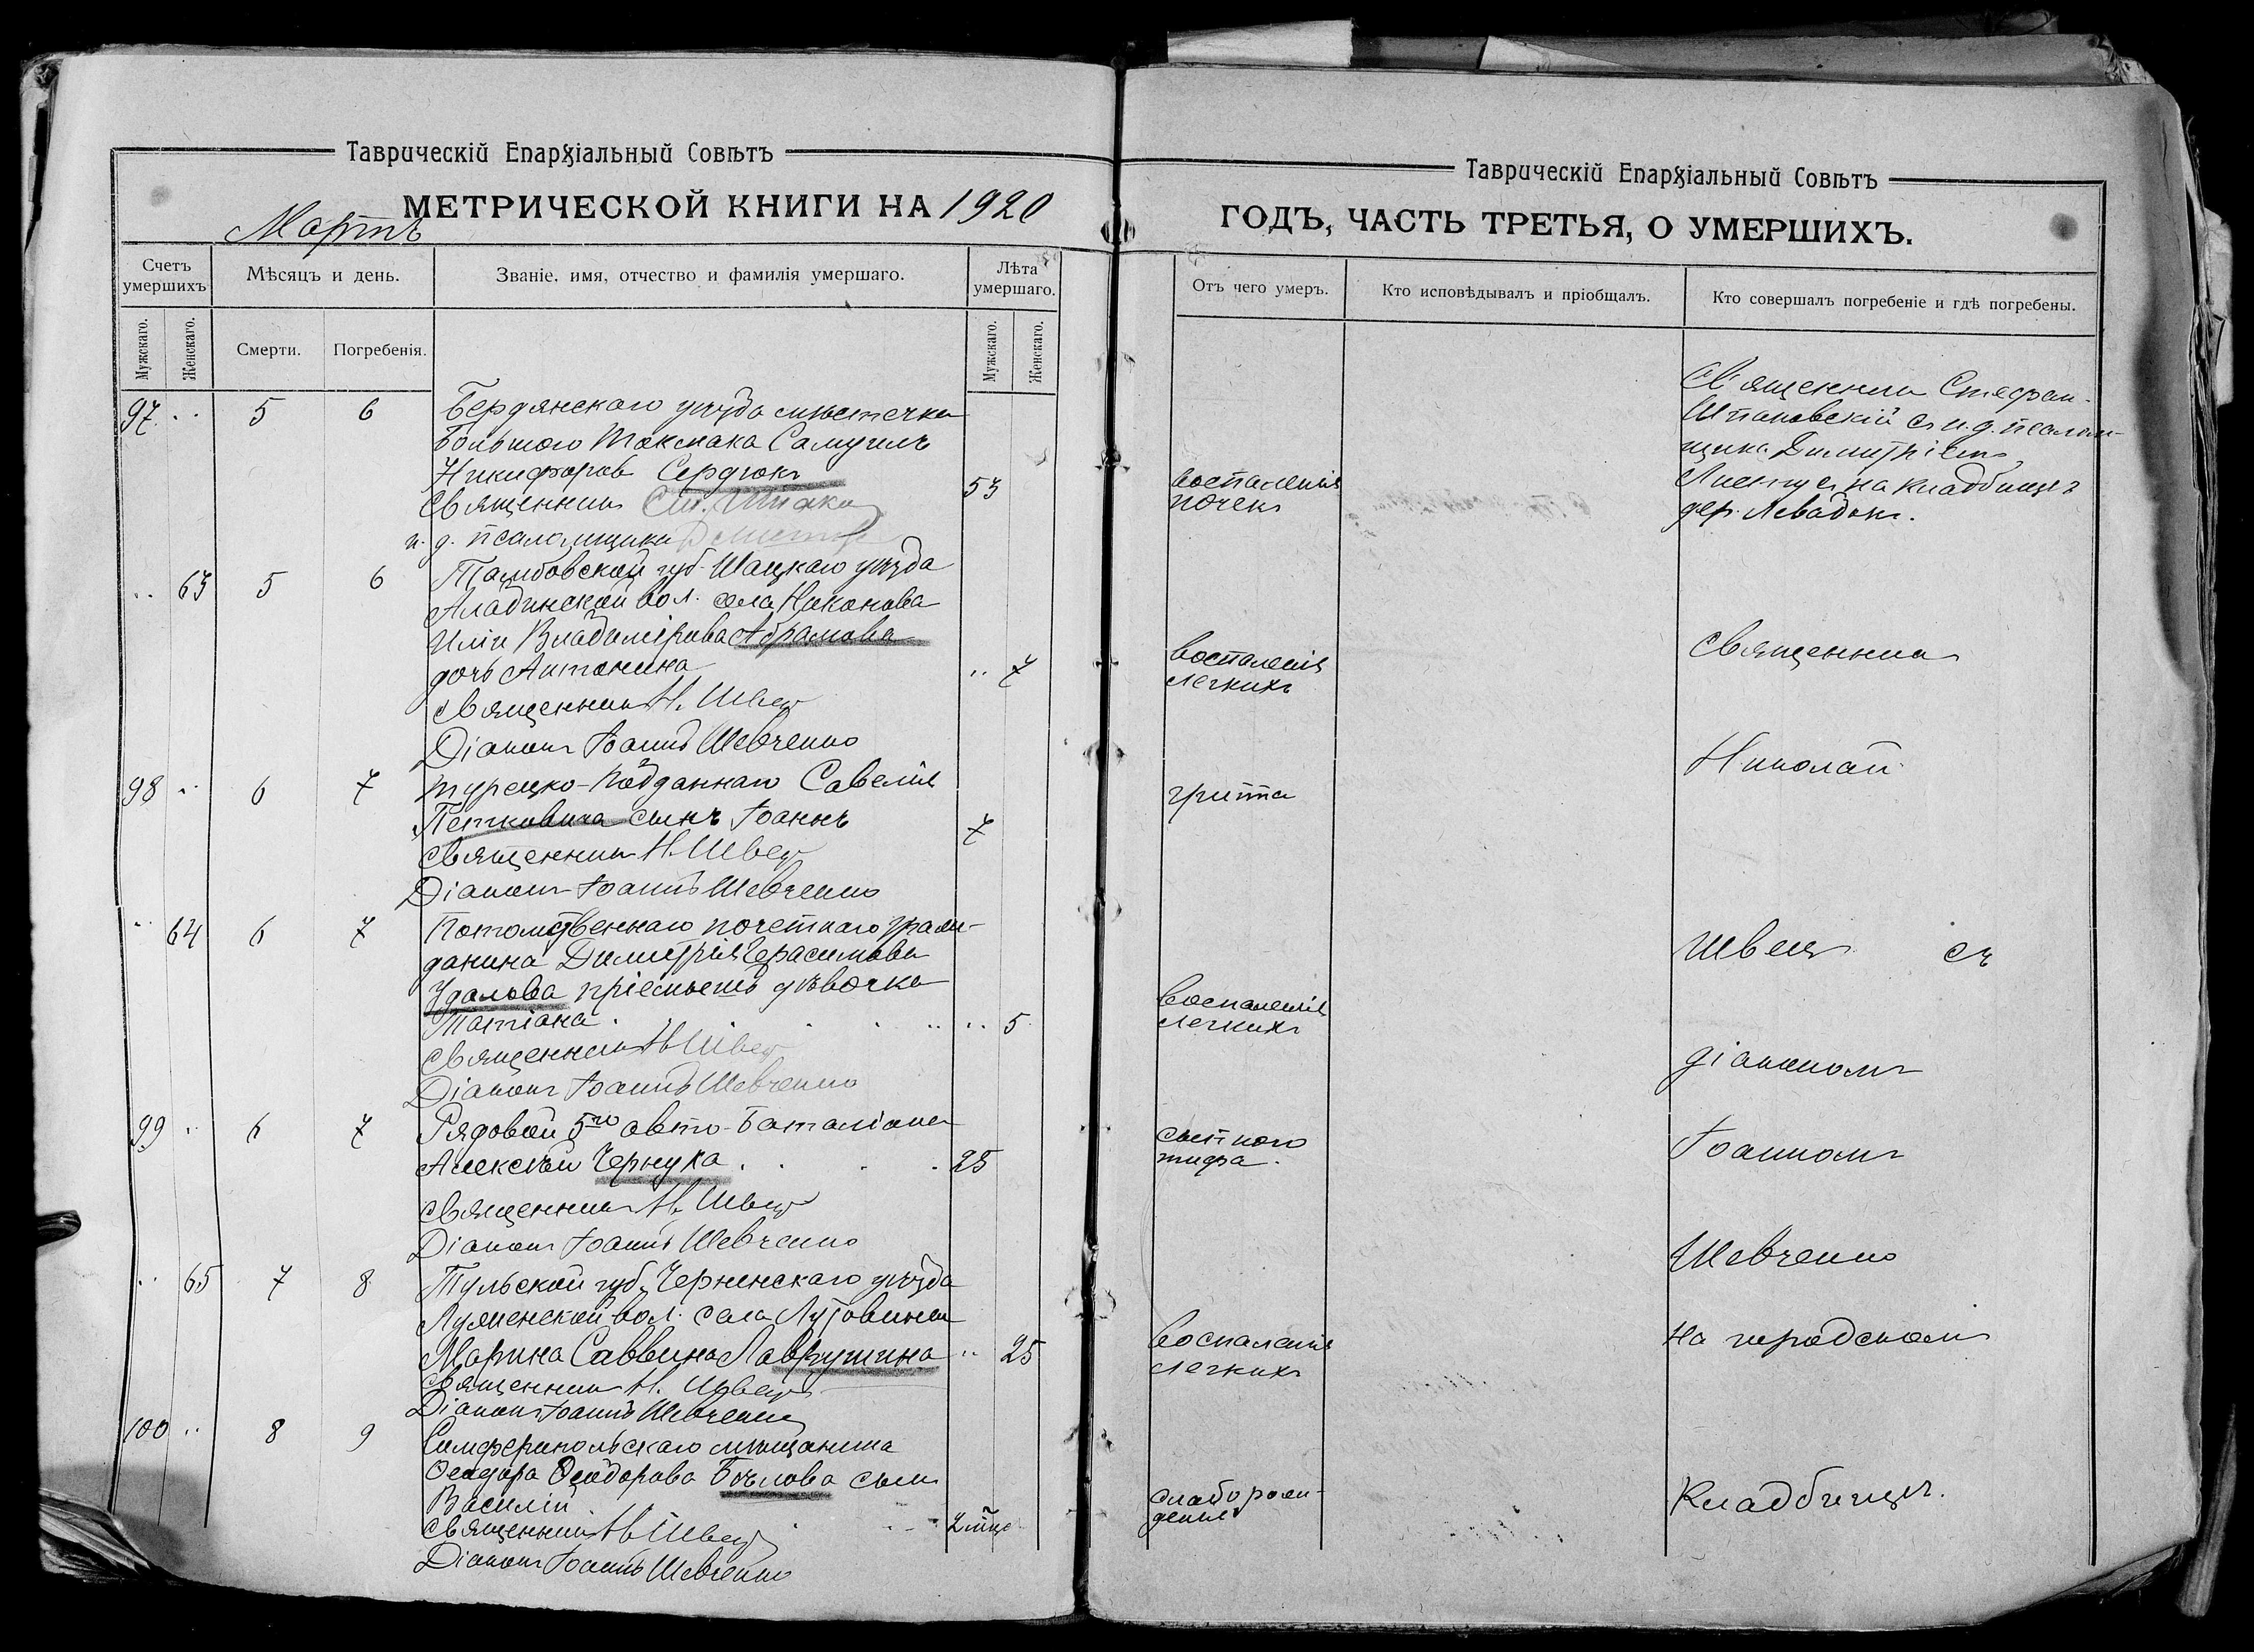 Таврическій Епархіальный Совѣтъ
МЕТРИЧЕСКОЙ КНИГИ НА 1920
Мартъ
Счетъ умершихъ
Мѣсяцъ и день.
Званіе, имя, отчество и фамилія умершаго.
Лѣта умершаго.
Мужскаго.
Женскаго.
Смерти.
Погребенія.
Мужскаго.
Женскаго.
97 .. 5 6 Бердянскаго уѣзда мѣстечка
Большого Токмака Самуилъ
Никифоров Сердюкъ 53
Священникъ Ст.
и. д. псаломщика
.. 63 5 6 Тамбовской губ. Шацкаго уѣзда
Аладинской вол. села Наконова
Иліи Владимірова Абрамова
дочь Антонина .. 7
Священникъ Н. Швец
Діаконъ Іоаннъ Шевченко
98 .. 6 7 турецко-подданнаго Савелія
Петковича сынъ Іоаннъ 7
Священникъ Н. Швец
Діаконъ Іоаннъ Шевченко
.. 64 6 7 Потомственнаго почетнаго граж-
данина Димитрія Герасимова
Удалова пріемышъ дѣвочка
Татіана .. 5
Священникъ Н Швец
Діаконъ Іоаннъ Шевченко
99 .. 6 7 Рядовой 5го авто-баталіона
Алексѣй Чернуха 25
Священникъ Н. Швец
Діаконъ Іоаннъ Шевченко
.. 65 7 8 Тульской губ. Чернскаго уѣзда
вол. села Лутовинова
Марина Саввина Лаврушина .. 25
Священникъ Н. Швец
Діаконъ Іоаннъ Шевченко
100 .. 8 9 Симферопольскаго мѣщанина
Ѳеодора Ѳеодорова Бѣлова сынъ
Василій
Священникъ Н Швец 2 мѣс
Діаконъ Іоаннъ Шевченко
Таврическій Епархіальный Совѣтъ
ГОДЪ, ЧАСТЬ ТРЕТЬЯ, О УМЕРШИХЪ.
Отъ чего умеръ.
Кто исповѣдывалъ и пріобщалъ.
Кто совершалъ погребеніе и гдѣ погребены.
Священникъ Стефан
Шпаковскій съ и.д. псалом-
щика Димитріемъ
на кладбищѣ
дер. Левадки.
воспаленія
почекъ
воспаленія
легкихъ
Священникъ
Николай
гриппа
Швецъ съ
воспаленія
легкихъ
діакономъ
сыпного
тифа.
Іоанномъ
Шевченко
воспаленія
легкихъ
на городскомъ
слаборож-
денія
Кладбищѣ.